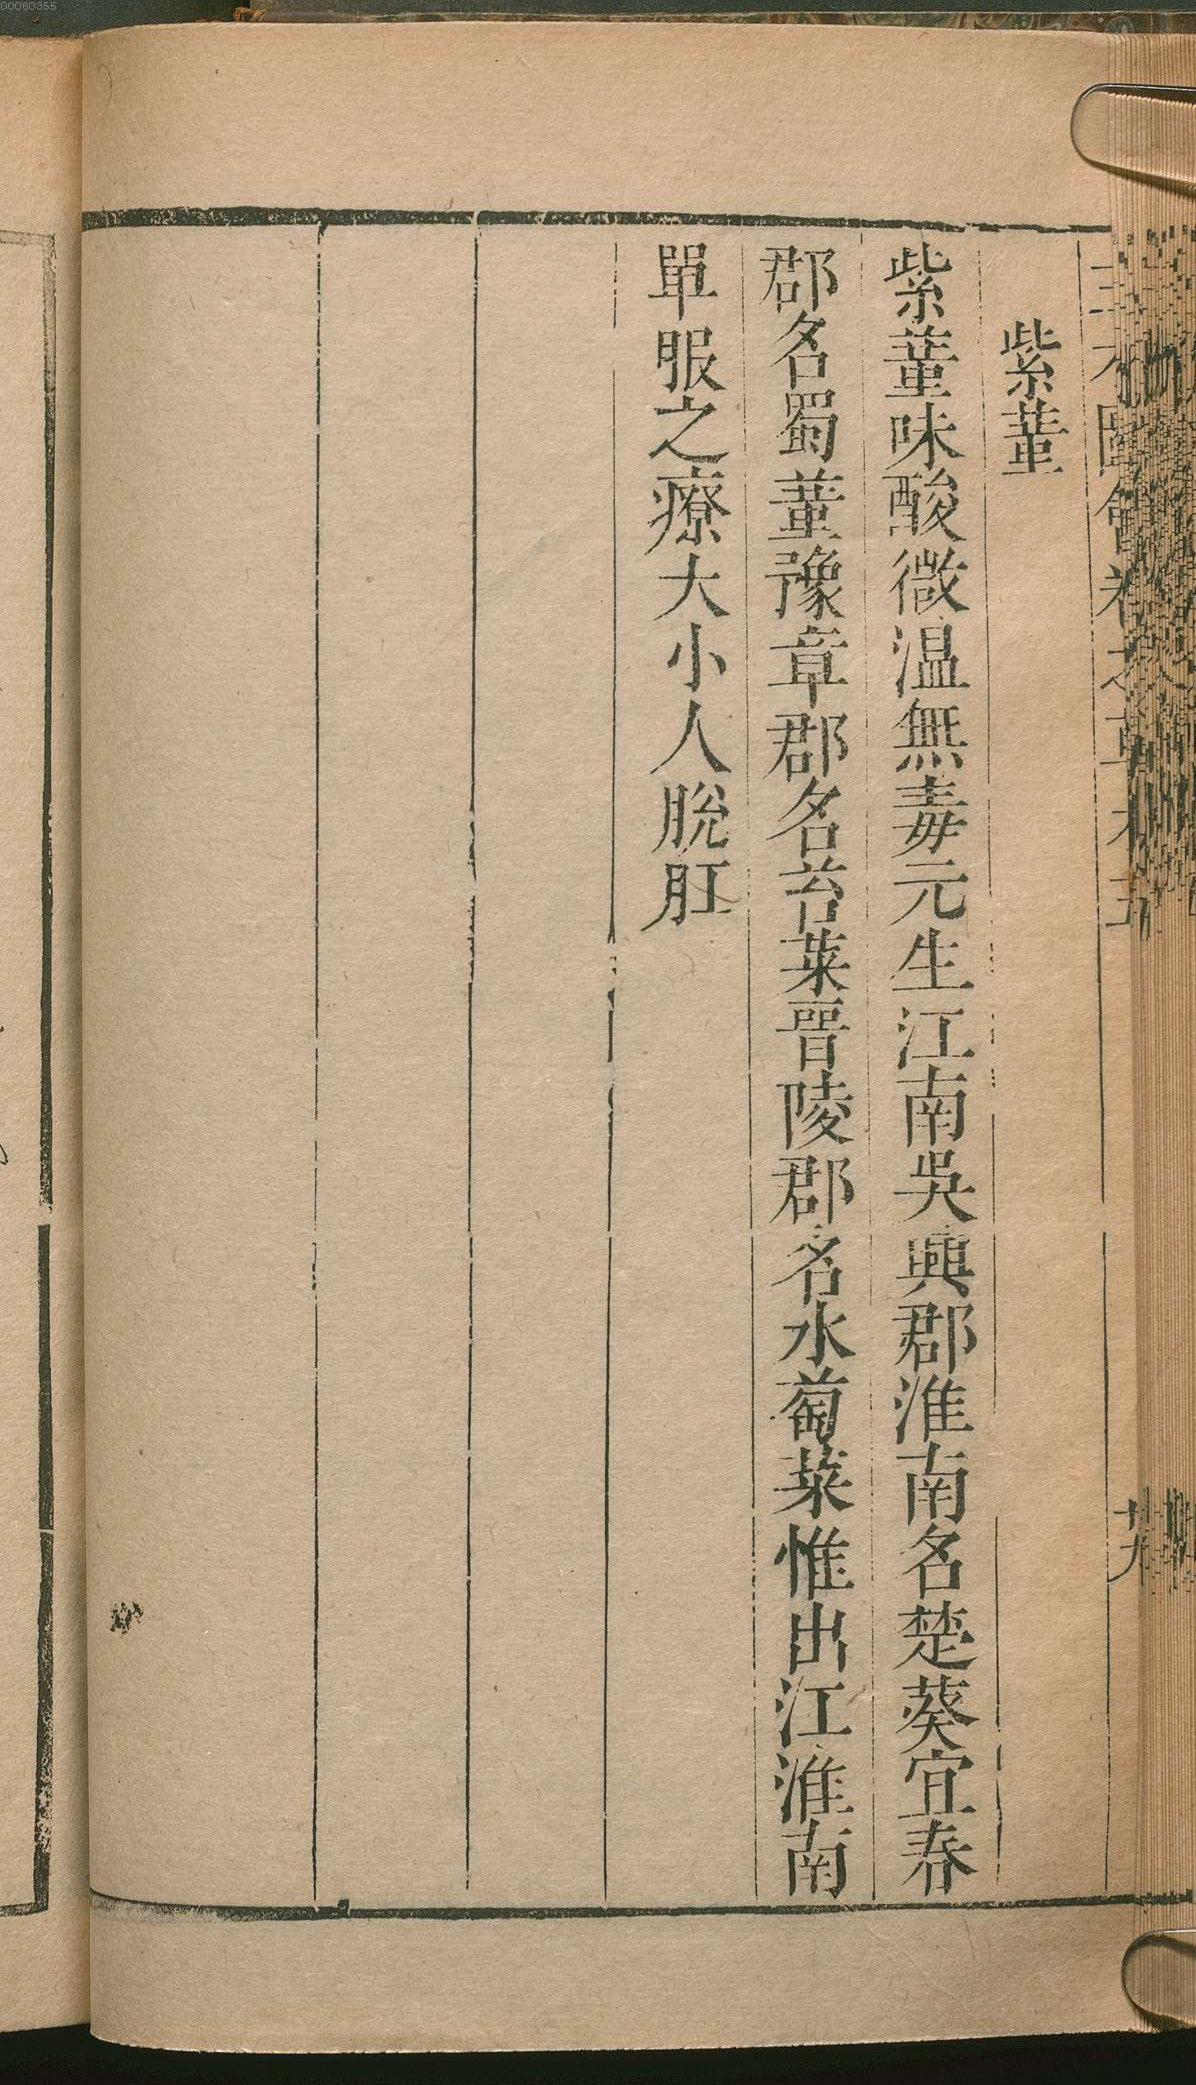 00060355
紫菫
紫菫味酸微温無毒元生江南吳興郡淮南名楚葵宜春
郡名蜀菫豫章郡名苔菜晉陵郡名水萄菜惟出江淮南
單服之療大小人脫肛